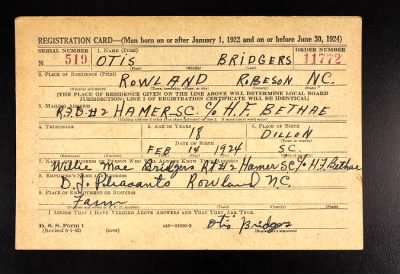 REGISTRATION CARD—(Men born on or after January 1, 1922 and on or before June 30, 1924)
SERIAL NUMBER 1. NAME (Print) ORDER NUMBER
N 519 OTIS BRIDGERS 11772
(First) (Middle) (Last)
2. PLACE OF RESIDENCE (Print)
ROWLAND ROBESON N.C.
[THE PLACE OF RESIDENCE GIVEN ON THE LINE ABOVE WILL DETERMINE LOCAL BOARD
JURISDICTION; LINE 2 OF REGISTRATION CERTIFICATE WILL BE IDENTICAL]
3. MAILING ADDRESS
R.F.D.#2 HAMER SC. C/o H.F. BETHAE
4. TELEPHONE 5. AGE IN YEARS 6. PLACE OF BIRTH
18 DILLON
DATE OF BIRTH
FEB 14 1924 SC.
Willie Mae Bridgers Rt #2 Hamer SC c/o H.F. Bethae
8. EMPLOYER'S NAME AND ADDRESS
D.J. Pleasants Rowland NC
9. PLACE OF EMPLOYMENT OR BUSINESS
Farm
I AFFIRM THAT I HAVE VERIFIED ABOVE ANSWERS AND THAT THEY ARE TRUE.
D. S. S. Form 1 Otis Bridgers
(over)